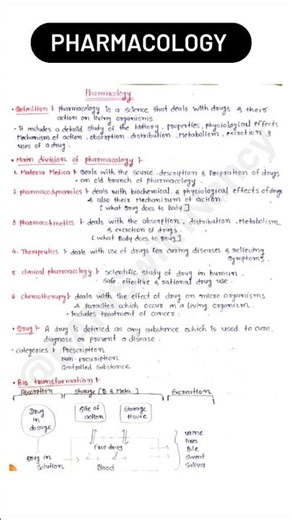 PHARMACOLOGY
Pharmacology
• Definition : Pharmacology is a science that deals with drugs & their
action on living organisms
- It includes a detaild study of the history, properties, physiological effects
Mechanism of action, absorption, distribution, Metabolism, excretion &
uses of a drug.
• Main division of pharmacology :-
1. Materia Medica : Deals with the source, description & preparation of drugs
- an old branch of pharmacology
2 pharmacodynamics : deals with biochemical & physiological effects of drugs
& also their Mechanism of action.
[ what Drug does to Body ]
3 pharmacokinetics : deals with the absorption, distribution, Metabolism
& excretion of drugs.
[ what Body does to Drug ]
4. Therapeutics :- deals with use of drugs for curing diseases & relieving
symptoms
5 clinical pharmacology : scientific study of drug in human.
Safe effective & rational drug use.
6 chemotherapy : deals with the effect of drug on micro organisms
& Parasites which occur in a living organism.
• Includes treatment of cancer.
• Drug :- A drug is defined as any substance which is used to cure,
diagnose or prevent a disease.
• categories : Prescription
Non-prescription
Controlled Substance
• Bio transformation :-
Absorption Storage [D. & Meta.] Excretion
Drug in dosage
Site of action
Storage tissue
Free drug
Drug in solution
Blood
urine
Bile
Sweat
Saliva